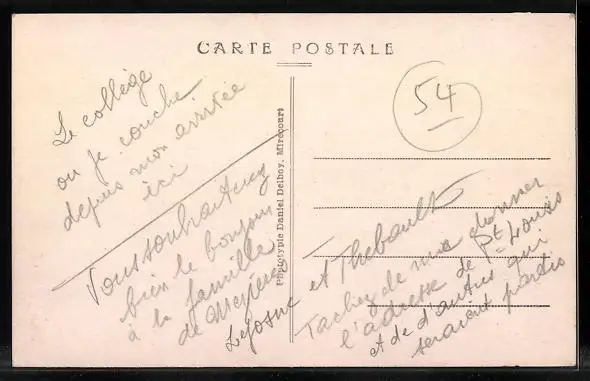 CARTE POSTALE
54
Le collège
ou je couche
depuis mon arrivée
ici
Vous souhaiterez
bien le bonjour
à la famille
de
Lejosne et Thebault
Tachez de me donner
l'adresse de Pt Louis
et de d'autres qui
seraient partis
Phototypie Daniel Delboy, Mirecourt